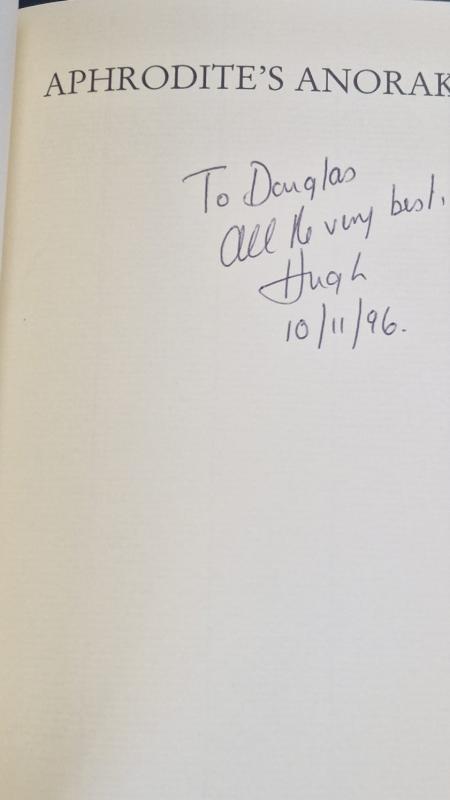 APHRODITE'S ANORAK
To Douglas
All the very best,
Hugh
10/11/96.